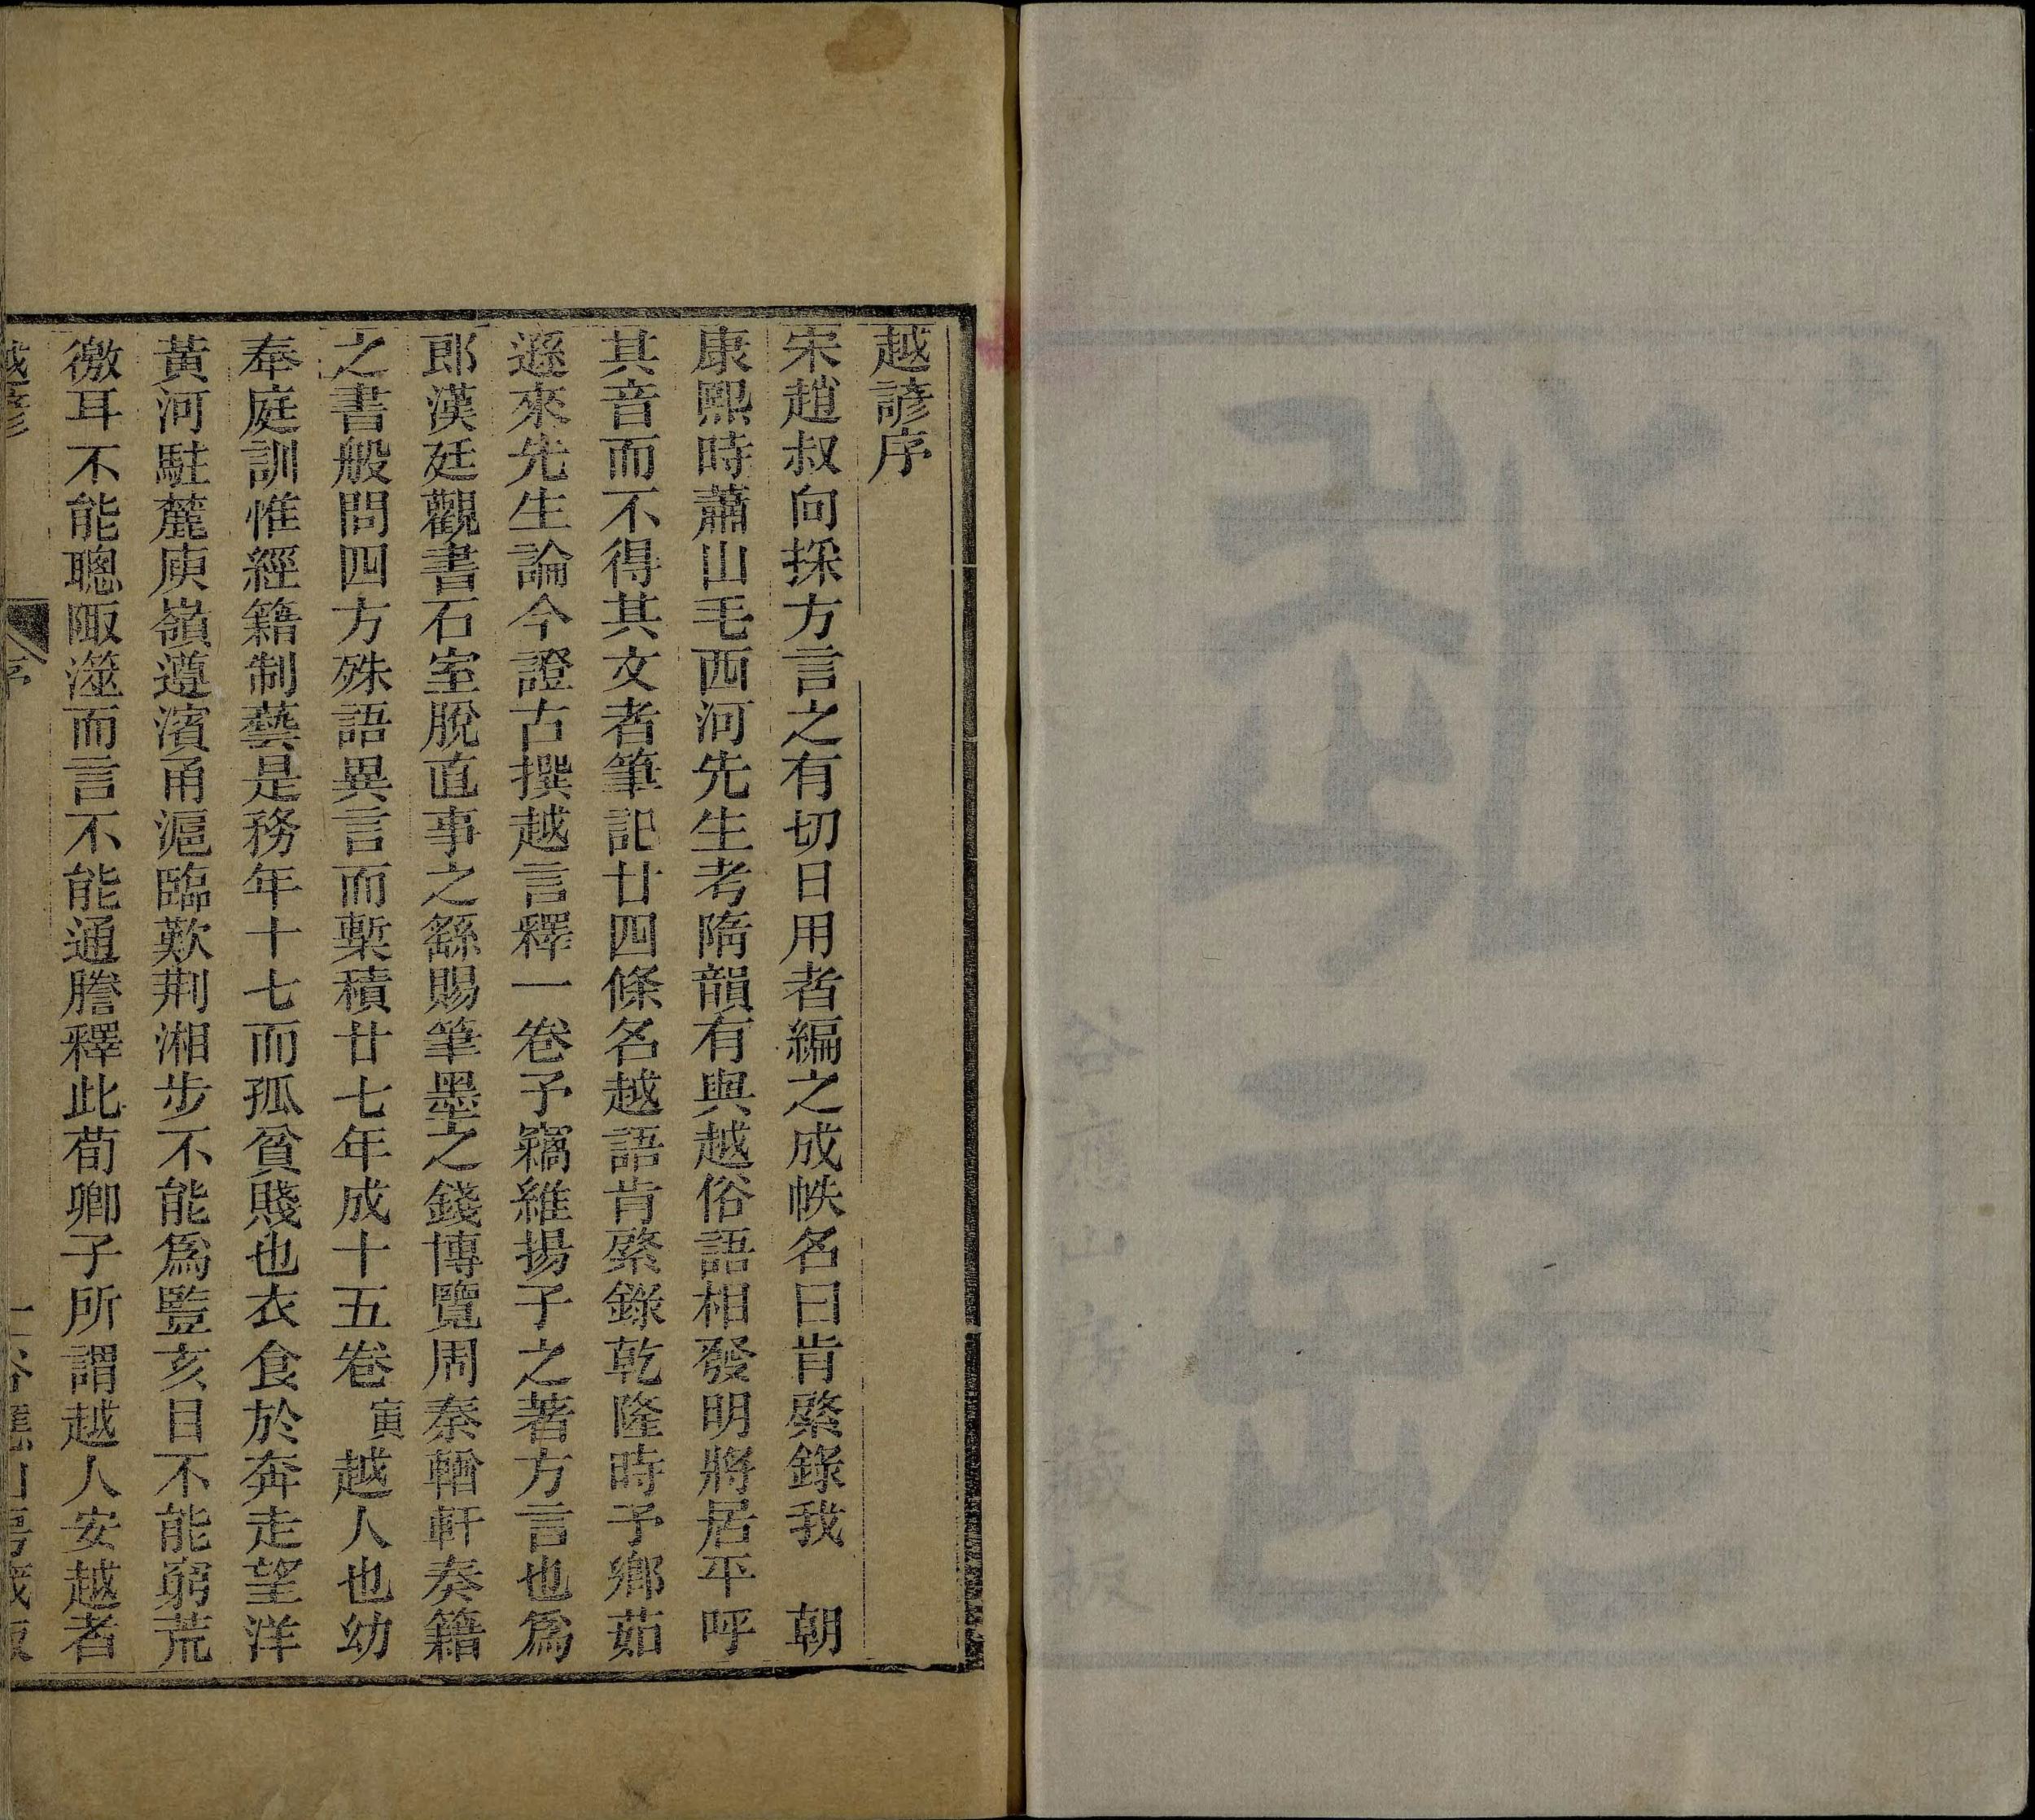 越諺序
宋趙叔向採方言之有切日用者編之成帙名曰肯綮錄我　朝
康熙時蕭山毛西河先生考隋韻有與越俗語相發明將居平呼
其音而不得其文者筆記廿四條名越語肯綮錄乾隆時予鄉茹
遜來先生論今證古撰越言釋一卷予竊維揚子之著方言也爲
郎漢廷觀書石室脫直事之繇賜筆墨之錢博覽周秦輶軒奏籍
之書般問四方殊語異言而槧積廿七年成十五卷寅越人也幼
奉庭訓惟經籍制藝是務年十七而孤貧賤也衣食於奔走望洋
黃河駐麓庾嶺遵濱甬滬臨歎荆湘步不能爲豎亥目不能窮荒
徼耳不能聰陬澨而言不能通譍釋此荀卿子所謂越人安越者
越諺　序　一